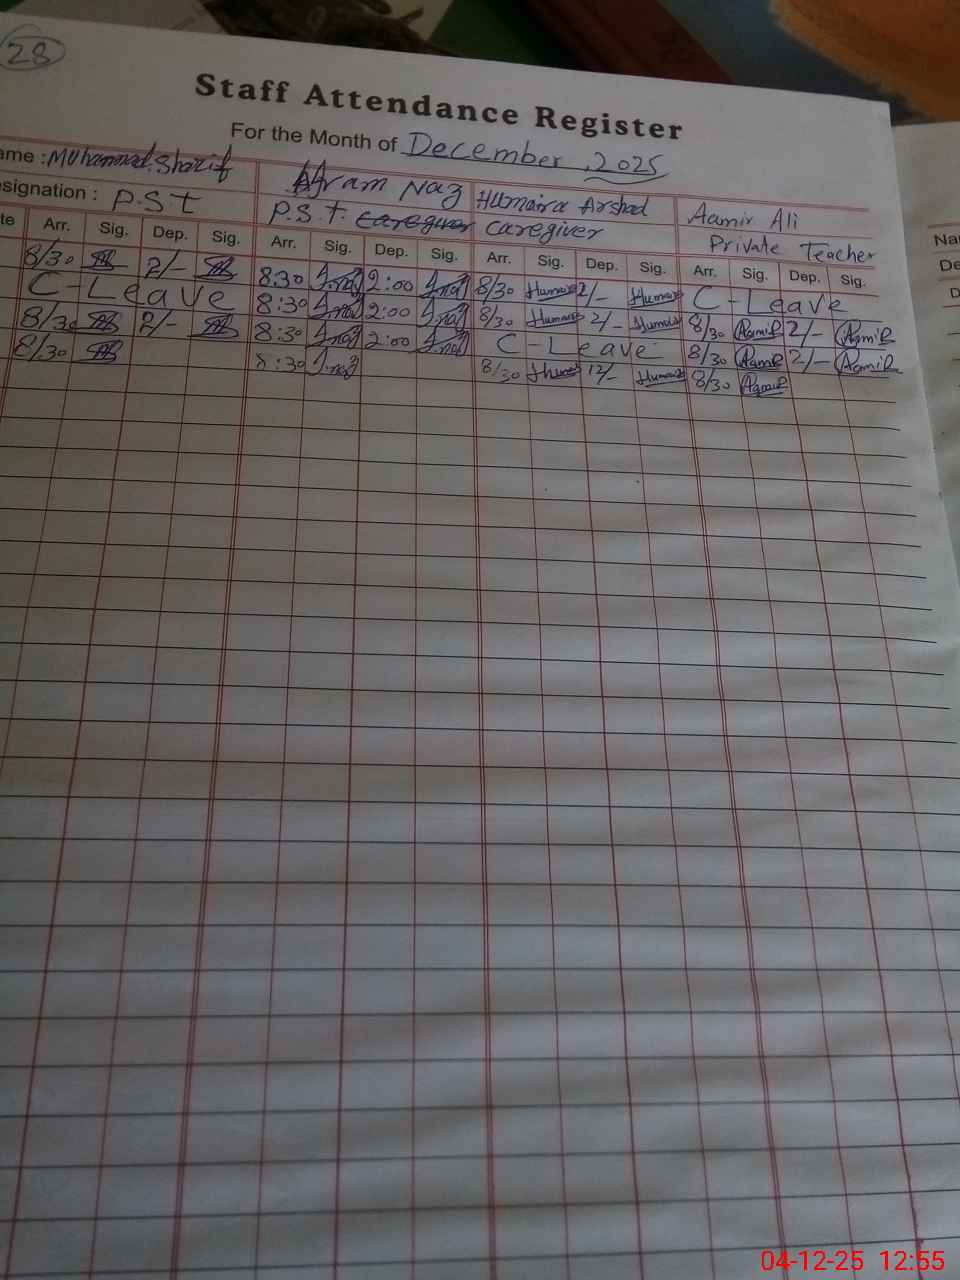 28
Staff Attendance Register
For the Month of December, 2025
ame : Muhammad Sharif Naz Humaira Arshad Aamir Ali
esignation : P.S.t P.S.t. caregiver caregiver Private Teacher
te Arr. Sig. Dep. Sig. Arr. Sig. Dep. Sig. Arr. Sig. Dep. Sig. Arr. Sig. Dep. Sig.
8/30 2/- 8:30 I.naz 2:00 I.naz 8/30 Humaira 2/- Humaira C-Leave
C-Leave 8:30 I.naz 2:00 I.naz 8/30 Humaira 2/- Humaira 8/30 Aamir 2/- Aamir
8/30 2/- 8:30 I.naz 2:00 I.naz C-Leave 8/30 Aamir 2/- Aamir
8/30 8:30 I.naz 8/30 Humaira 12/- Humaira 8/30 Aamir
Na
De
D
04-12-25 12:55